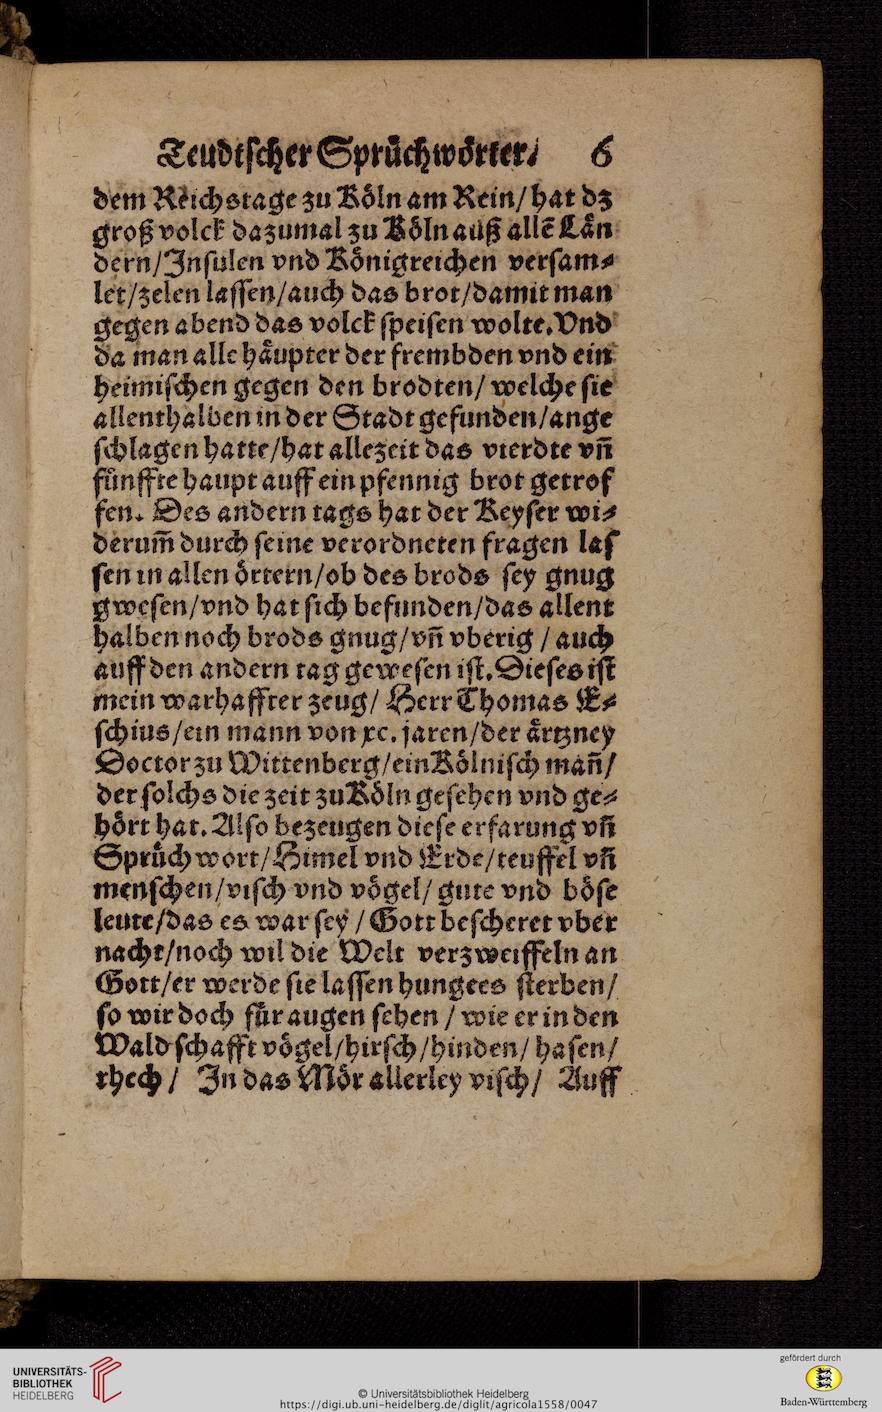 Teudtscher Sprüchwörter/ 6
dem Reichstage zu Köln am Rein/ hat dz
groß volck dazumal zu Köln auß allẽ Län
dern/Jnsulen vnd Königreichen versam⸗
let/zelen lassen/auch das brot/damit man
gegen abend das volck speisen wolte. Vnd
da man alle häupter der frembden vnd ein
heimischen gegen den brodten/ welche sie
allenthalben in der Stadt gefunden/ange
schlagen hatte/hat allezeit das vierdte vñ
fünffte haupt auff ein pfennig brot getrof
fen. Des andern tags hat der Keyser wi⸗
derum̃ durch seine verordneten fragen las
sen in allen örtern/ob des brods sey gnug
gwesen/vnd hat sich befunden/das allent
halben noch brods gnug/vñ vberig / auch
auff den andern tag gewesen ist. Dieses ist
mein warhaffter zeug/ Herr Thomas E⸗
schius/ein mann von xc. jaren/der ärtzney
Doctor zu Wittenberg/ein Kölnisch mañ/
der solchs die zeit zu Köln gesehen vnd ge⸗
hört hat. Also bezeugen diese erfarung vñ
Sprüchwort/Himel vnd Erde/teuffel vñ
menschen/visch vnd vögel/ gute vnd böse
leute/das es war sey / Gott bescheret vber
nacht/noch wil die Welt verzweiffeln an
Gott/er werde sie lassen hungers sterben/
so wir doch für augen sehen / wie er in den
Wald schafft vögel/hirsch/hinden/ hasen/
rhech / Jn das Mör allerley visch/ Auff
UNIVERSITÄTS-
BIBLIOTHEK
HEIDELBERG
© Universitätsbibliothek Heidelberg
https://digi.ub.uni-heidelberg.de/diglit/agricola1558/0047
gefördert durch
Baden-Württemberg